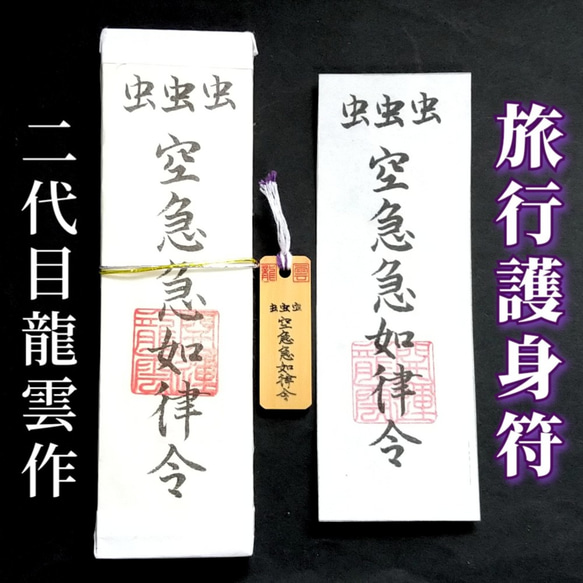 旅行護身符
虫虫虫
空急急如律令
龍
雲
虫虫虫
空急急如律令
虫虫虫
空急急如律令
二代目龍雲作